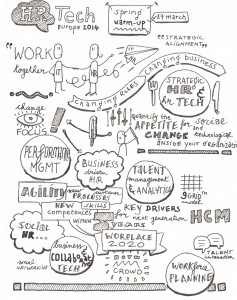 HR Tech
europe 2014
spring
warm-up
24th march
"STRATEGIC
ALIGNMENT"
"WORK
together
IT
HR
Changing business
changing rules
STRATEGIC
HR &
HR TECH
change
FOCUS!
quantify the
APPETITE for social
and
CHANGE technological
INSIDE your organization
PERFORMING
MGMT
BUSINESS
driven
HR
Talent
management
& ANALYTICS
9 GRID
model
AGILITY
new
PROCESSES
NEW SKILLS
competences
WITHIN
KEY DRIVERS
for next generation
HCM
3 YEARS
SOCIAL
HR...
business
COLLABORATE
TECH
WORKPLACE
2020
CROWD
TALENT
WORKFORCE
PLANNING